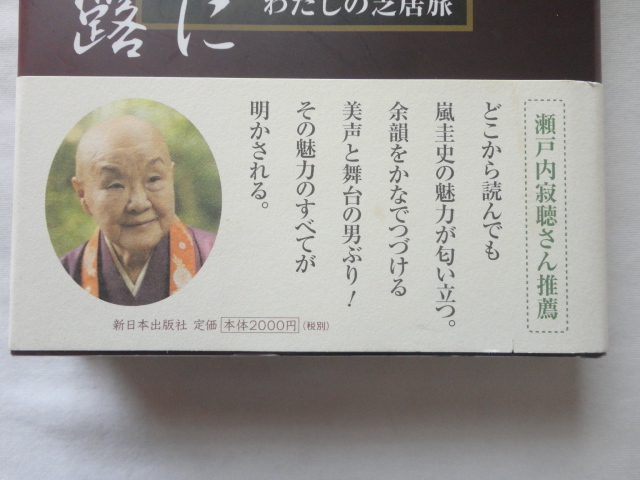 路に
わたしの芝居旅
瀬戸内寂聴さん推薦
どこから読んでも
嵐圭史の魅力が匂い立つ。
余韻をかなでつづける
美声と舞台の男ぶり！
その魅力のすべてが
明かされる。
新日本出版社 定価 本体2000円 (税別)